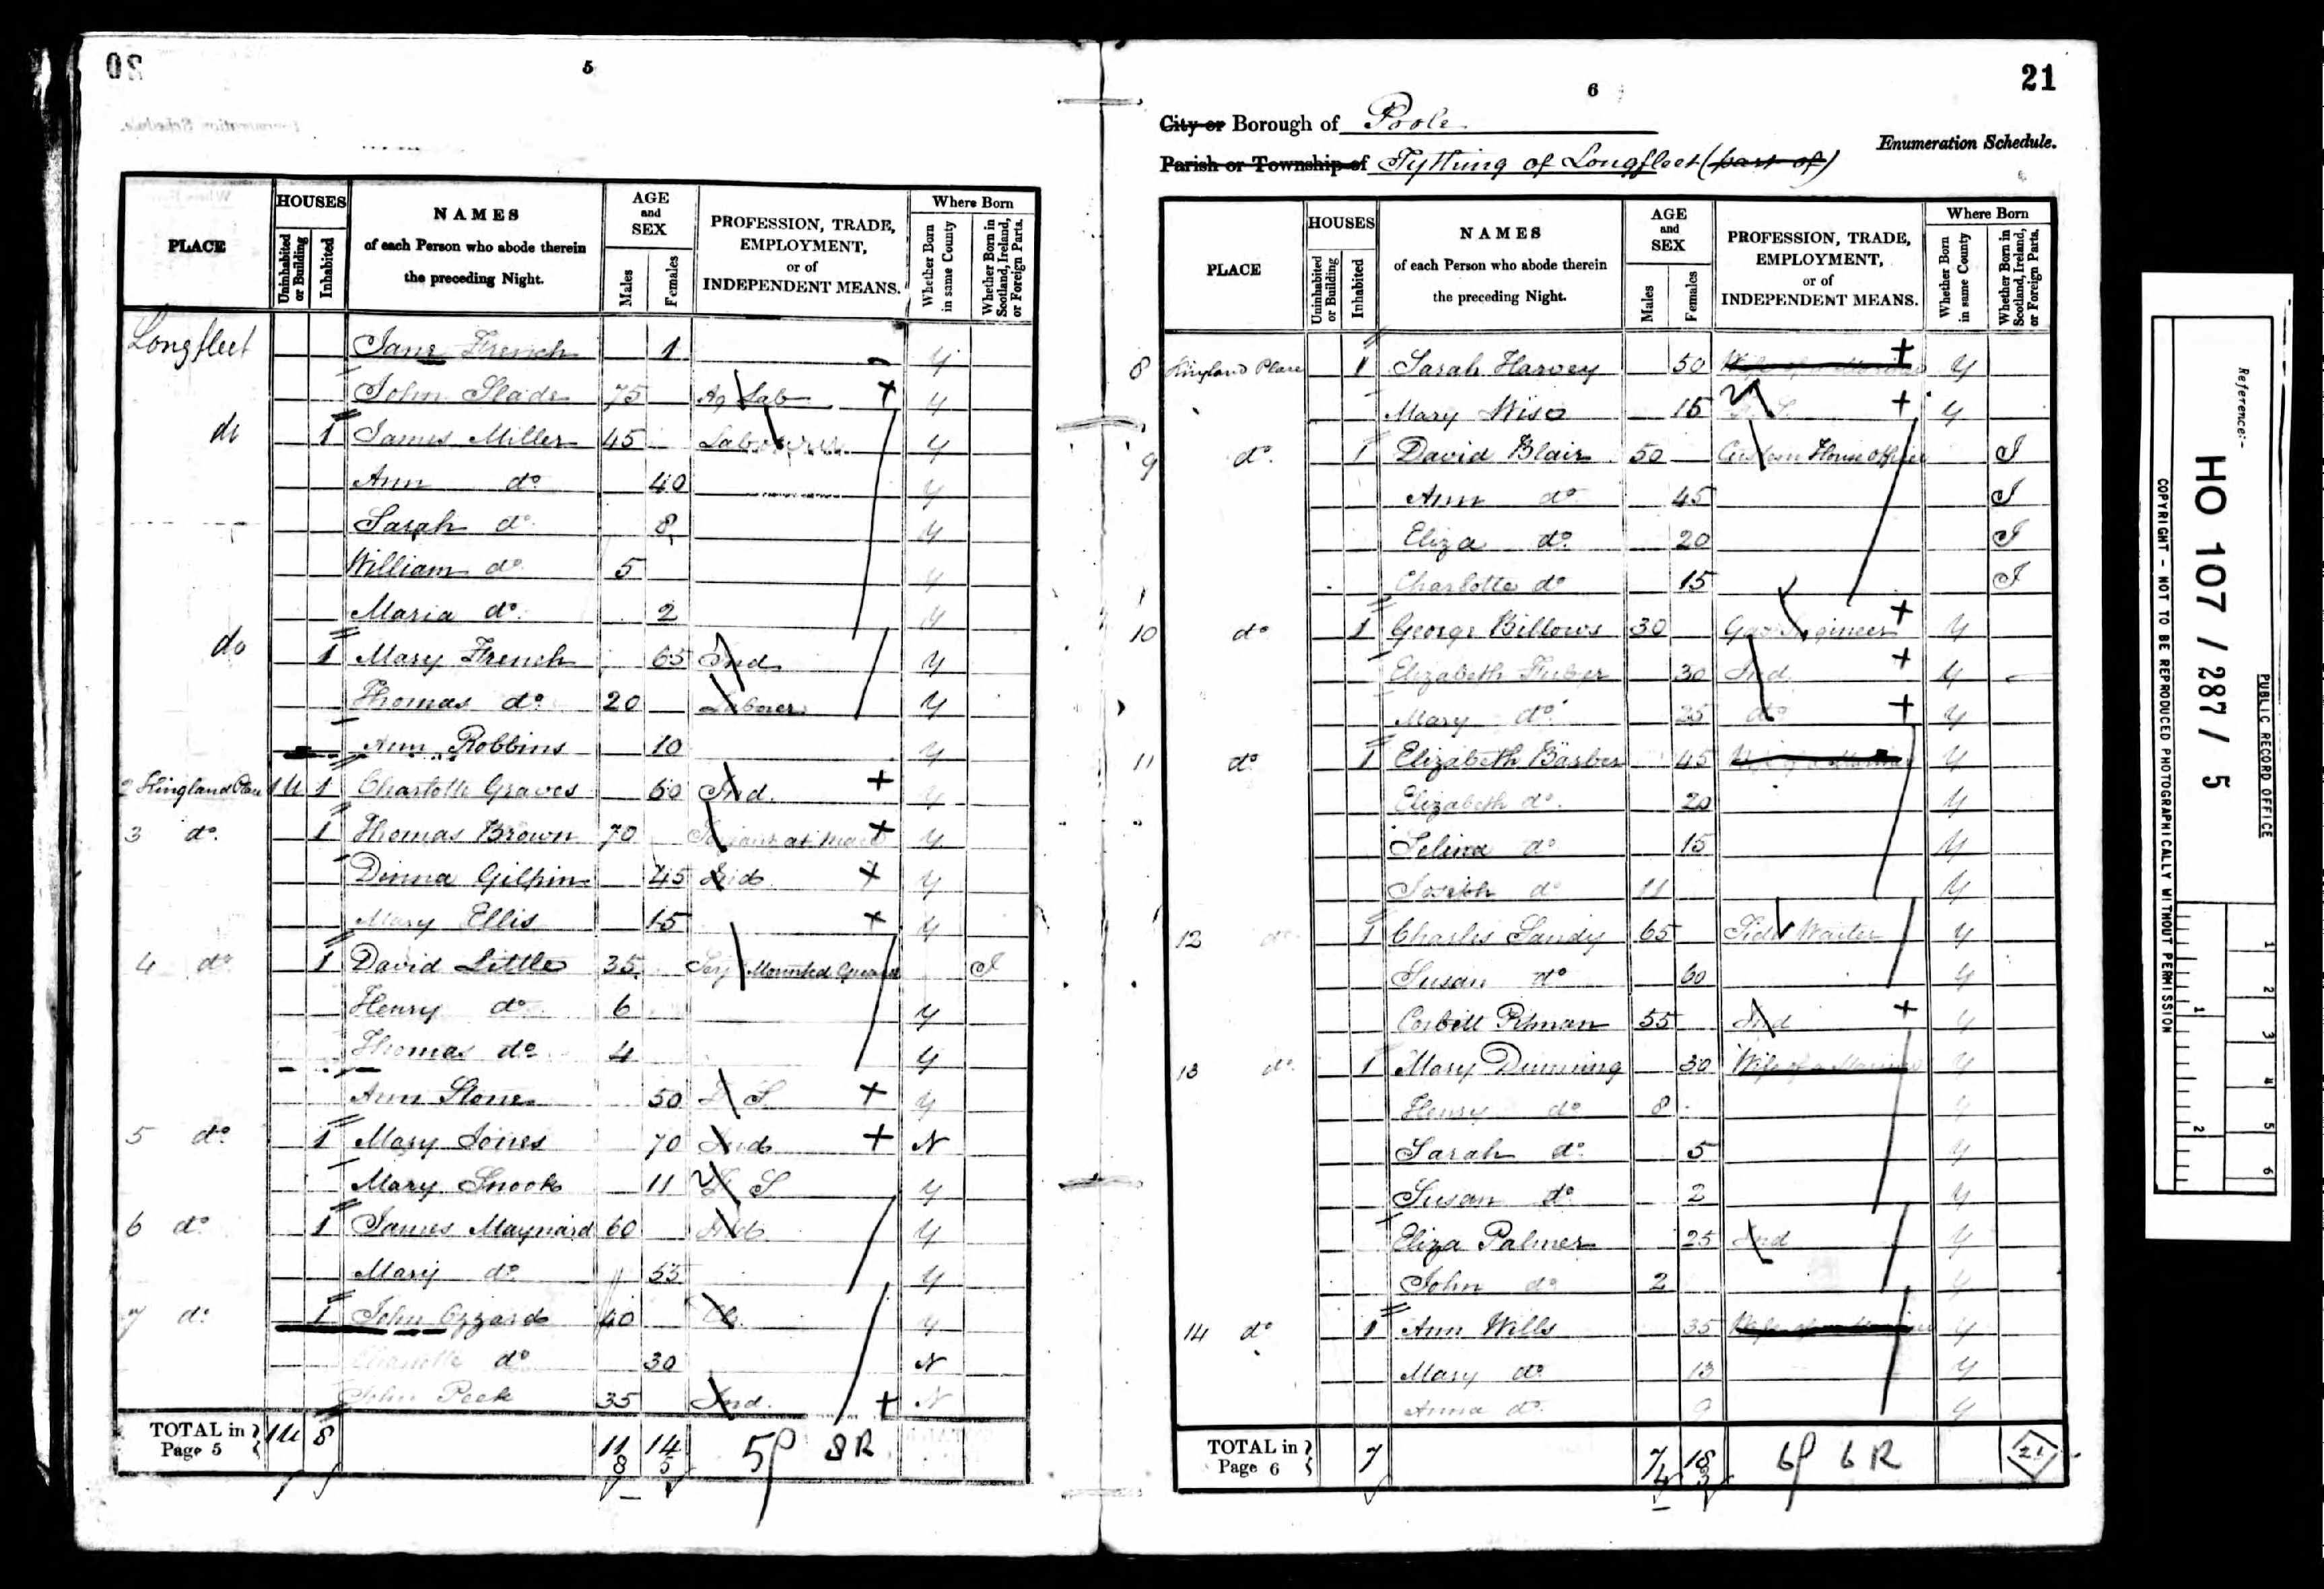 5
HOUSES
AGE and SEX
Where Born
PLACE
Uninhabited or Building
Inhabited
NAMES of each Person who abode therein the preceding Night.
Males
Females
PROFESSION, TRADE, EMPLOYMENT, or of INDEPENDENT MEANS.
Whether Born in same County
Whether Born in Scotland, Ireland, or Foreign Parts.
Longfleet Jane French 1 y
John Slade 75 Ag Lab + y
do 1 James Miller 45 Labourer y
Ann do 40 y
Sarah do 8 y
William do 5 y
Maria do 2 y
do 1 Mary French 65 Ind y
Thomas do 20 Laborer y
Ann Robbins 10 y
2 Kingland Place 1U 1 Charlotte Graves 60 Ind. + y
3 do 1 Thomas Brown 70 at Mace + y
Dinna Gilpin 45 Ind + y
Mary Ellis 15 + y
4 do 1 David Little 35 Mounted Guard I
Henry do 6 y
Thomas do 4 y
Ann Stone 50 F S + y
5 do 1 Mary Jones 70 Ind + N
Mary Snook 11 F S y
6 do 1 James Maynard 60 Ind y
Mary do 55 y
7 do 1 John Ozzard 40 y
Charlotte do 30 N
John Peek 35 Ind. + N
TOTAL in Page 5 1U 8 11 14 5p 8R
8 5
6
21
City or Borough of Poole
Enumeration Schedule.
Parish or Township of Tything of Longfleet (part of)
HOUSES
AGE and SEX
Where Born
PLACE
Uninhabited or Building
Inhabited
NAMES of each Person who abode therein the preceding Night.
Males
Females
PROFESSION, TRADE, EMPLOYMENT, or of INDEPENDENT MEANS.
Whether Born in same County
Whether Born in Scotland, Ireland, or Foreign Parts.
8 Kingland Place 1 Sarah Harvey 50 Wife of a Mariner + y
Mary Wise 15 + y
9 do 1 David Blair 50 Custom House Officer I
Ann do 45 I
Eliza do 20 I
Charlotte do 15 I
10 do 1 George Billows 30 Gas Engineer + y
Elizabeth 30 Ind + y
Mary do 25 do + y
11 do 1 Elizabeth Barber 45 Wife of a Mariner y
Elizabeth do 20 y
Selina do 15 y
Joseph do 11 y
12 do 1 Charles Sandy 65 Tide Waiter y
Susan do 60 y
Corbett Pitman 55 Ind + y
13 do 1 Mary Dunning 30 Wife of a Mariner y
Henry do 8 y
Sarah do 5 y
Susan do 2 y
Eliza Palmer 25 Ind y
John do 2 y
14 do 1 Ann Wills 35 Wife of a Mariner y
Mary do 13 y
Anna do 9 y
TOTAL in Page 6 7 7 18 6p 6R 21
4 3
Reference:-
PUBLIC RECORD OFFICE
HO 107 / 287 / 5
COPYRIGHT - NOT TO BE REPRODUCED PHOTOGRAPHICALLY WITHOUT PERMISSION
1 2 3 4 5 6
1 2